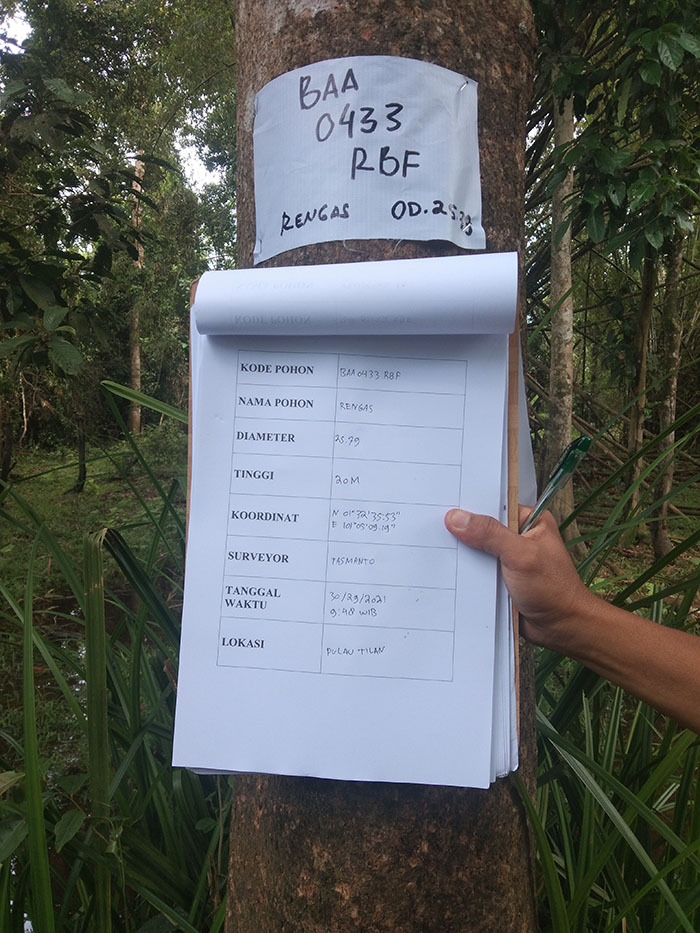 BAA
0433
RBF
RENGAS OD.25.79
KODE POHON BAA 0433 RBF
NAMA POHON RENGAS
DIAMETER 25.79
TINGGI 20 M
KOORDINAT N 01°32'35.53"
E 101°05'09.19"
SURVEYOR TASMANTO
TANGGAL 30/29/2021
WAKTU 9:48 WIB
LOKASI PULAU TILAN